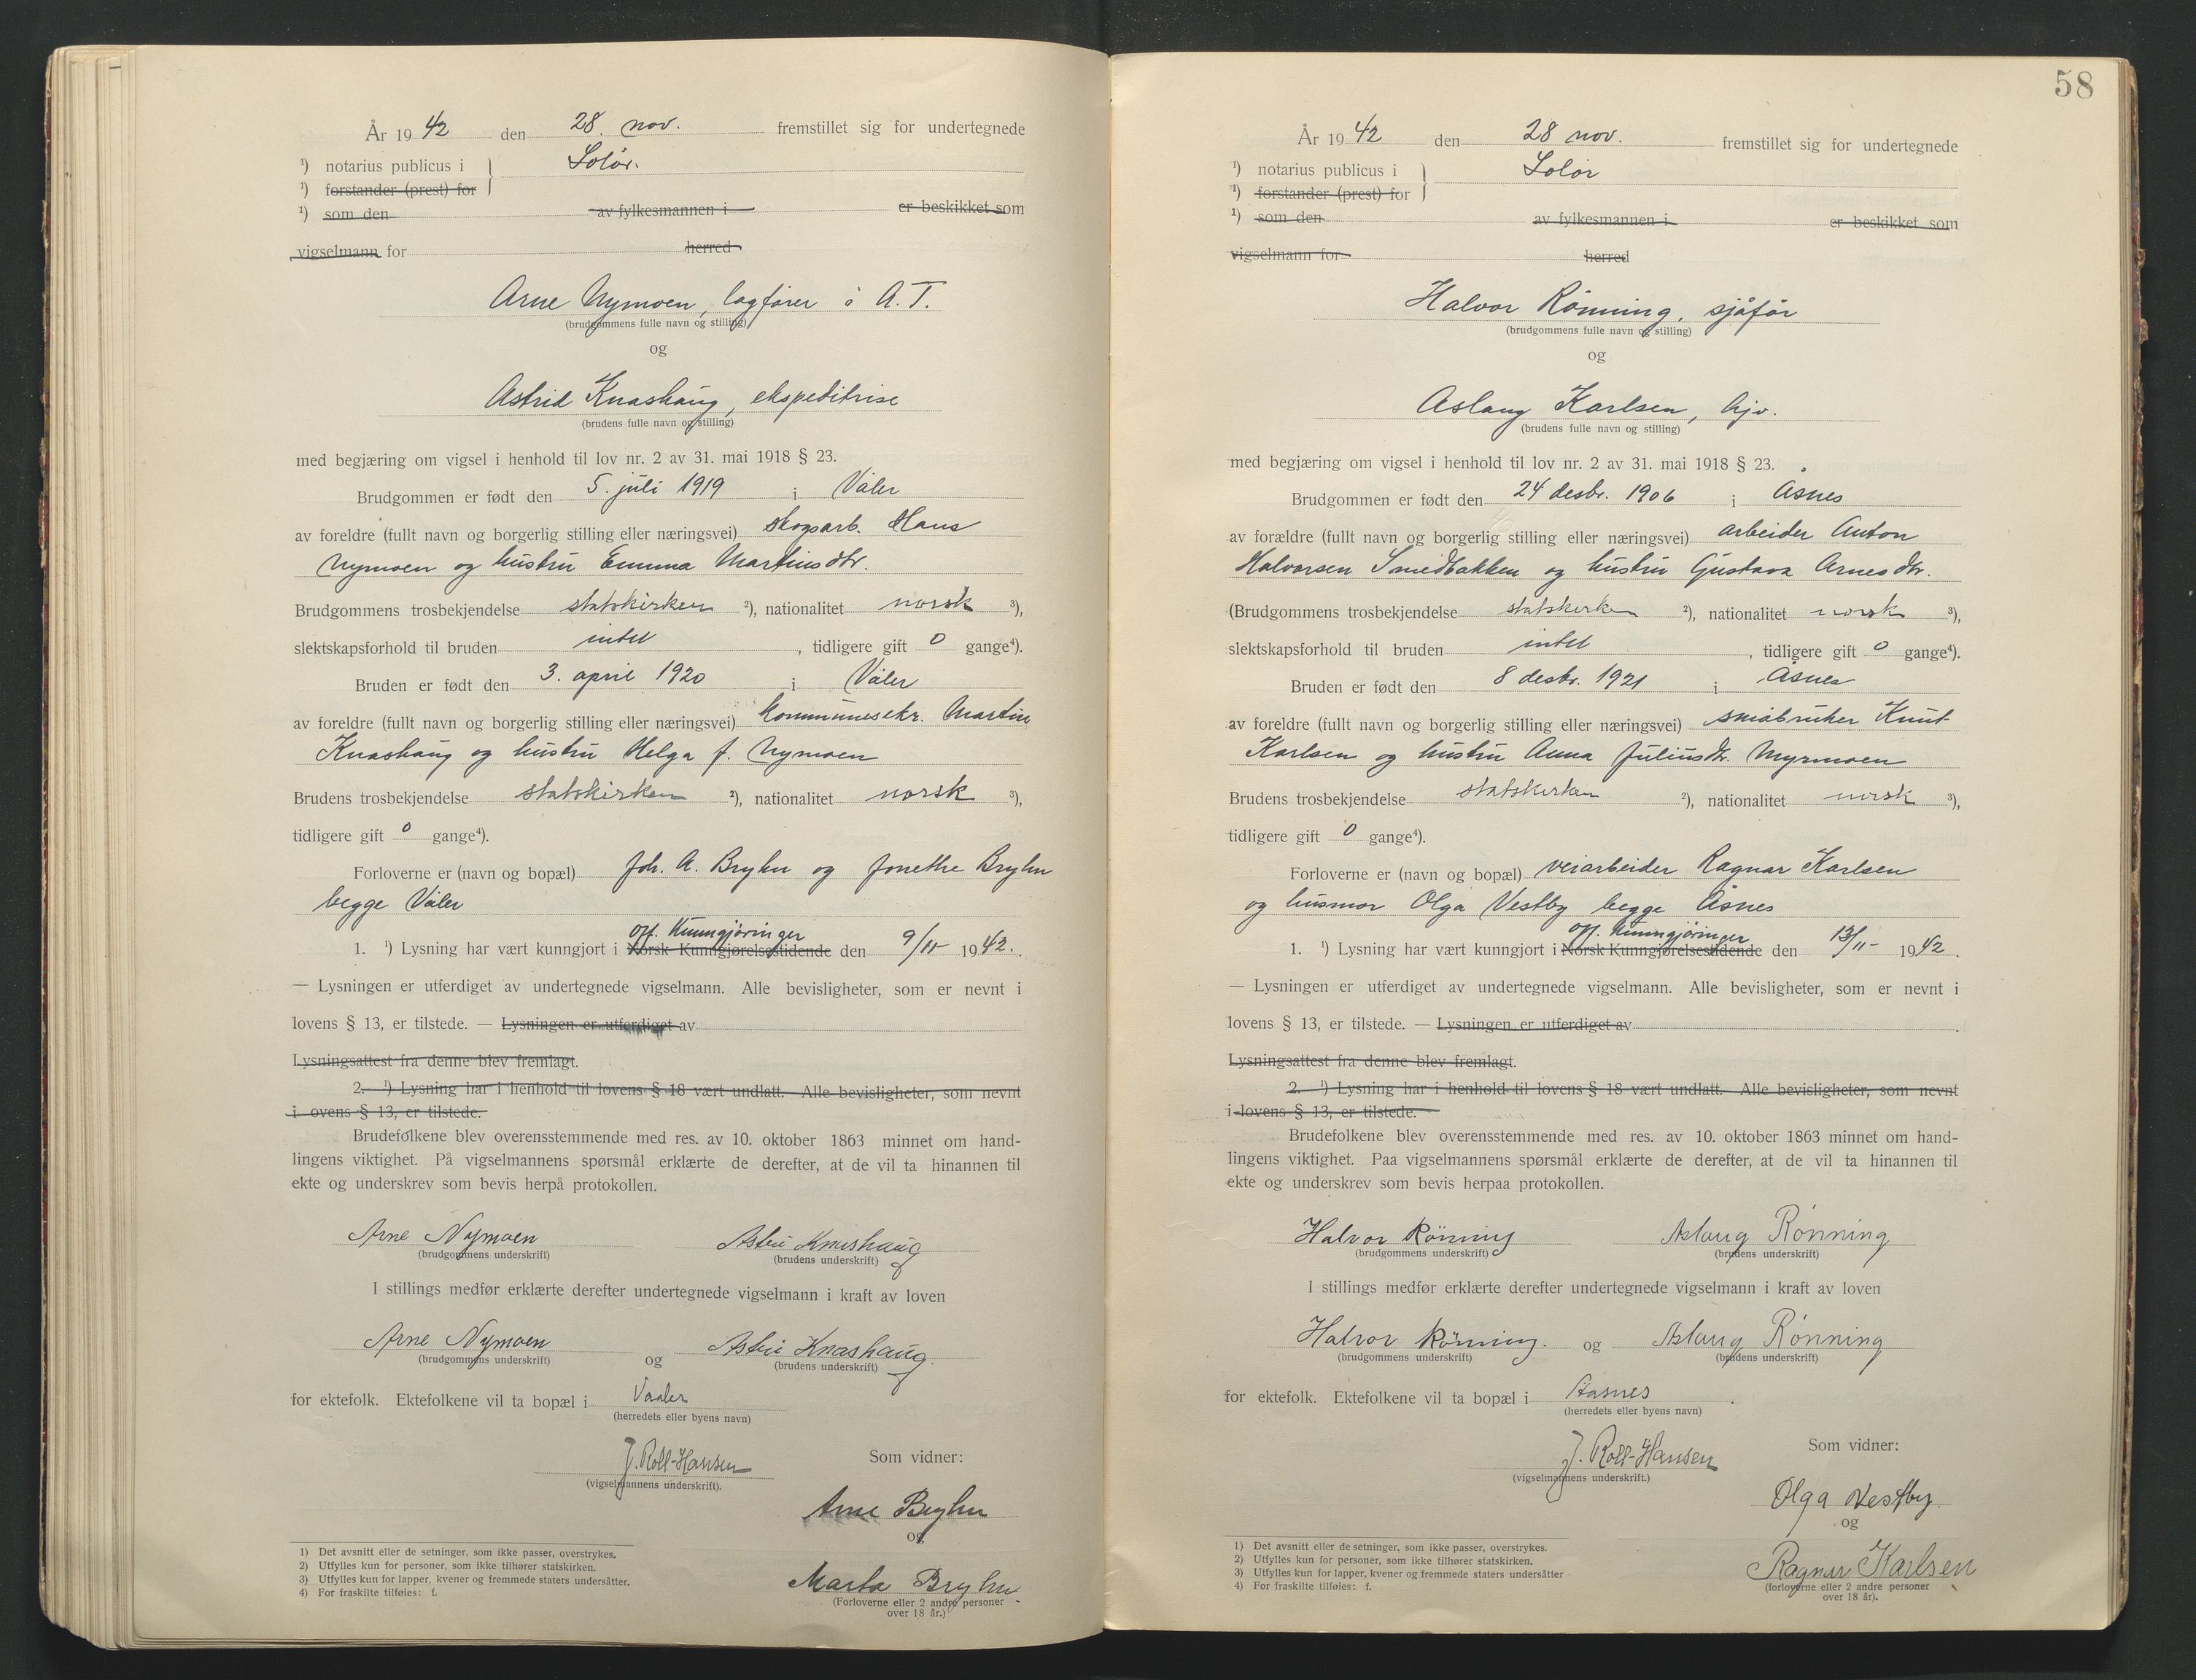 År 19 42 den 28. nov. fremstillet sig for undertegnede
¹) notarius publicus i } Solør.
¹) forstander (prest) for
¹) som den av fylkesmannen i er beskikket som
vigselmann for herred
Arne Nymoen, lagfører i A.T.
(brudgommens fulle navn og stilling)
og
Astrid Knashaug, ekspeditrise
(brudens fulle navn og stilling)
med begjæring om vigsel i henhold til lov nr. 2 av 31. mai 1918 § 23.
Brudgommen er født den 5. juli 1919 i Våler
av foreldre (fullt navn og borgerlig stilling eller næringsvei) skogsarb. Hans
Nymoen og hustru Emma Martinsdtr.
Brudgommens trosbekjendelse statskirken ²), nationalitet norsk ³),
slektskapsforhold til bruden intet , tidligere gift 0 gange⁴).
Bruden er født den 3. april 1920 i Våler
av foreldre (fullt navn og borgerlig stilling eller næringsvei) kommunesekr. Martin
Knashaug og hustru Helga f. Nymoen
Brudens trosbekjendelse statskirken ²), nationalitet norsk ³),
tidligere gift 0 gange⁴).
Forloverne er (navn og bopæl) Joh. A. Bryhn og Jonethe Bryhn
begge Våler
off. Kunngjøringer
1. ¹) Lysning har vært kunngjort i Norsk Kunngjørelsestidende den 9/11- 1942.
— Lysningen er utferdiget av undertegnede vigselmann. Alle bevisligheter, som er nevnt i
lovens § 13, er tilstede. — Lysningen er utferdiget av
Lysningsattest fra denne blev fremlagt.
2. ¹) Lysning har i henhold til lovens § 18 vært undlatt. Alle bevisligheter, som nevnt
i ovens § 13, er tilstede.
Brudefolkene blev overensstemmende med res. av 10. oktober 1863 minnet om hand-
lingens viktighet. På vigselmannens spørsmål erklærte de derefter, at de vil ta hinannen til
ekte og underskrev som bevis herpå protokollen.
Arne Nymoen Astri Knashaug
(brudgommens underskrift) (brudens underskrift)
I stillings medfør erklærte derefter undertegnede vigselmann i kraft av loven
Arne Nymoen og Astri Knashaug
(brudgommens underskrift) (brudens underskrift)
for ektefolk. Ektefolkene vil ta bopæl i Vaaler
(herredets eller byens navn)
J. Roll-Hansen Som vidner:
(vigselmannens underskrift).
Arne Bryhn
og
Marta Bryhn
(Forloverne eller 2 andre personer
over 18 år.)
1) Det avsnitt eller de setninger, som ikke passer, overstrykes.
2) Utfylles kun for personer, som ikke tilhører statskirken.
3) Utfylles kun for lapper, kvener og fremmede staters undersåtter.
4) For fraskilte tilføies: f.
58
År 19 42 den 28 nov. fremstillet sig for undertegnede
¹) notarius publicus i } Solør
¹) forstander (prest) for
¹) som den av fylkesmannen i er beskikket som
vigselmann for herred
Halvor Rönning, sjåför
(brudgommens fulle navn og stilling)
og
Aslaug Karlsen, hjv.
(brudens fulle navn og stilling)
med begjæring om vigsel i henhold til lov nr. 2 av 31. mai 1918 § 23.
Brudgommen er født den 24 desbr. 1906 i Åsnes
av forældre (fullt navn og borgerlig stilling eller næringsvei) arbeider Anton
Halvorsen Smedbakken og hustru Gustava Arnesdtr.
(Brudgommens trosbekjendelse statskirken ²), nationalitet norsk ³),
slektskapsforhold til bruden intet , tidligere gift 0 gange⁴).
Bruden er født den 8 desbr. 1921 i Åsnes
av foreldre (fullt navn og borgerlig stilling eller næringsvei) småbruker Knut
Karlsen og hustru Anna Juliusdtr. Myrmoen
Brudens trosbekjendelse statskirken ²), nationalitet norsk ³),
tidligere gift 0 gange⁴).
Forloverne er (navn og bopæl) veiarbeider Ragnar Karlsen
og husmor Olga Vestby begge Åsnes
off. Kunngjøringer
1. ¹) Lysning har vært kunngjort i Norsk Kunngjørelsestidende den 13/11- 1942.
— Lysningen er utferdiget av undertegnede vigselmann. Alle bevisligheter, som er nevnt i
lovens § 13, er tilstede. — Lysningen er utferdiget av .
Lysningsattest fra denne blev fremlagt.
2. ¹) Lysning har i henhold til lovens § 18 vært undlatt. Alle bevisligheter, som nevnt
i lovens § 13, er tilstede.
Brudefolkene blev overensstemmende med res. av 10. oktober 1863 minnet om hand-
lingens viktighet. Paa vigselmannens spørsmål erklærte de derefter, at de vil ta hinannen til
ekte og underskrev som bevis herpaa protokollen.
Halvor Rönning Aslaug Rönning
(brudgommens underskrift) (brudens underskrift)
I stillings medfør erklærte derefter undertegnede vigselmann i kraft av loven
Halvor Rönning. og Aslaug Rönning
(brudgommens underskrift) (brudens underskrift)
for ektefolk. Ektefolkene vil ta bopæl i Aasnes .
(herredets eller byens navn)
J. Roll-Hansen Som vidner:
(vigselmannens underskrift.)
Olga Vestby.
og
Ragnar Karlsen
(forloverne eller 2 andre personer
over 18 år).
1) Det avsnitt eller de setninger, som ikke passer, overstrykes.
2) Utfylles kun for personer, som ikke tilhører statskirken.
3) Utfylles kun for lapper, kvener og fremmede staters undersåtter
4) For fraskilte tilføies: f.